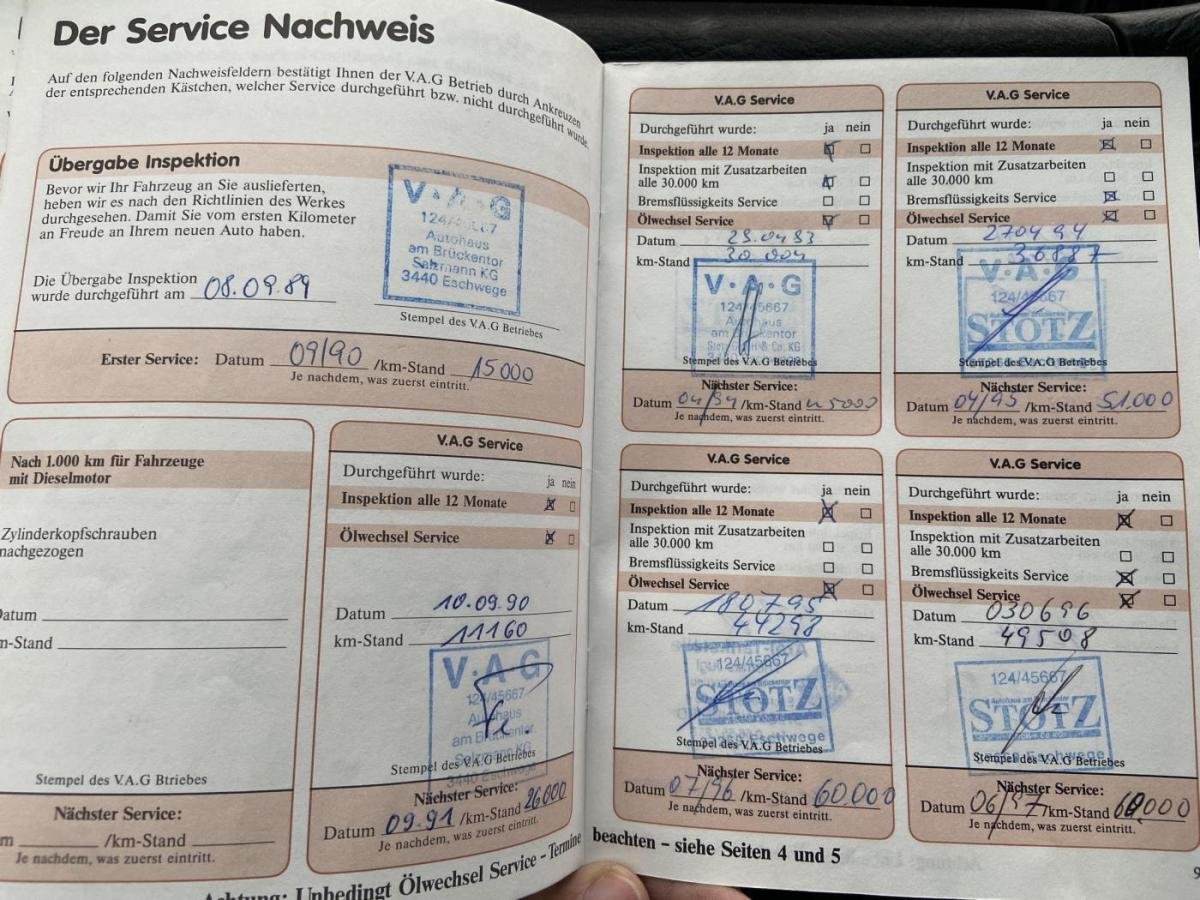 Der Service Nachweis
Auf den folgenden Nachweisfeldern bestätigt Ihnen der V.A.G Betrieb durch Ankreuzen
der entsprechenden Kästchen, welcher Service durchgeführt bzw. nicht durchgeführt wurde.
Übergabe Inspektion
Bevor wir Ihr Fahrzeug an Sie auslieferten,
heben wir es nach den Richtlinien des Werkes
durchgesehen. Damit Sie vom ersten Kilometer
an Freude an Ihrem neuen Auto haben.
Die Übergabe Inspektion
wurde durchgeführt am 08.09.89
V·A·G
124/45667
Autohaus
am Brückentor
Salzmann KG
3440 Eschwege
Stempel des V.A.G Betriebes
Erster Service: Datum 09/90 /km-Stand 15000
Je nachdem, was zuerst eintritt.
Nach 1.000 km für Fahrzeuge
mit Dieselmotor
Zylinderkopfschrauben
nachgezogen
Datum
km-Stand
Stempel des V.A.G Btriebes
Nächster Service:
/km-Stand
Je nachdem, was zuerst eintritt.
V.A.G Service
Durchgeführt wurde: ja nein
Inspektion alle 12 Monate
Ölwechsel Service
Datum 10.09.90
km-Stand 11160
V·A·G
124/45667
Autohaus
am Brückentor
Salzmann KG
3440 Eschwege
Stempel des V.A.G Betriebes
Nächster Service:
Datum 09.91 /km-Stand 26000
Je nachdem, was zuerst eintritt.
Achtung: Unbedingt Ölwechsel Service - Termine
V.A.G Service
Durchgeführt wurde: ja nein
Inspektion alle 12 Monate
Inspektion mit Zusatzarbeiten
alle 30.000 km
Bremsflüssigkeits Service
Ölwechsel Service
Datum
km-Stand 30.004
V·A·G
124/45667
Autohaus
am Brückentor
Stempel des V.A.G Betriebes
Nächster Service:
Datum 04/94 /km-Stand
Je nachdem, was zuerst eintritt.
V.A.G Service
Durchgeführt wurde: ja nein
Inspektion alle 12 Monate
Inspektion mit Zusatzarbeiten
alle 30.000 km
Bremsflüssigkeits Service
Ölwechsel Service
Datum 270494
km-Stand 36887
V·A·G
124/45667
STOTZ
Stempel des V.A.G Betriebes
Nächster Service:
Datum 04/95 /km-Stand 51.000
Je nachdem, was zuerst eintritt.
V.A.G Service
Durchgeführt wurde: ja nein
Inspektion alle 12 Monate
Inspektion mit Zusatzarbeiten
alle 30.000 km
Bremsflüssigkeits Service
Ölwechsel Service
Datum 180795
km-Stand 44298
124/45667
STOTZ
Eschwege
Stempel des V.A.G Betriebes
Nächster Service:
Datum 07/96 /km-Stand 60.000
Je nachdem, was zuerst eintritt.
V.A.G Service
Durchgeführt wurde: ja nein
Inspektion alle 12 Monate
Inspektion mit Zusatzarbeiten
alle 30.000 km
Bremsflüssigkeits Service
Ölwechsel Service
Datum 030696
km-Stand 49508
124/45667
STOTZ
Eschwege
Stempel des V.A.G Betriebes
Nächster Service:
Datum 06/97 /km-Stand
Je nachdem, was zuerst eintritt.
beachten - siehe Seiten 4 und 5
9